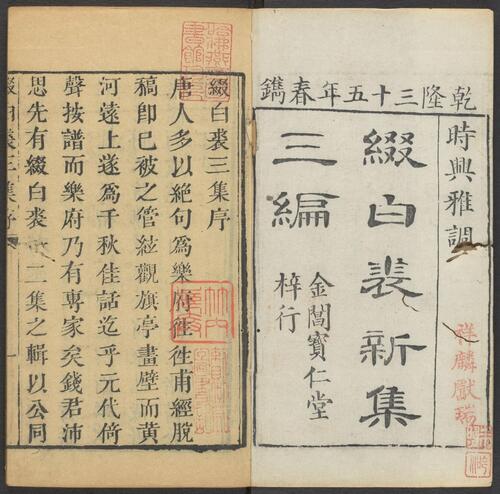 乾隆三十五年春鐫
時興雅調
綴白裘新集
三編
金閶寶仁堂
梓行
祥麟獻瑞
綴白裘三集序
唐人多以絶句爲樂府徃徃甫經脫
稿卽已被之管絃觀旗亭畫壁而黃
河遠上遂爲千秋佳話迄乎元代倚
聲按譜而樂府乃有專家矣錢君沛
思先有綴白裘一二集之輯以公同
綴白裘三集序
一